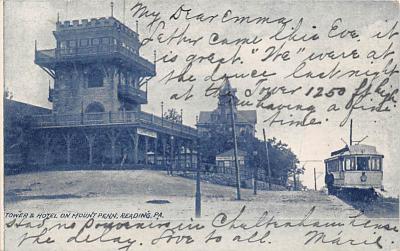 My Dear Emma
Letter came like Eve, it
is great. "We" were at
the dance last night
at the Tower 1250 ft high
having a fine
time.
TOWER & HOTEL ON MOUNT PENN, READING, PA.
Had no souvenirs in
the delay. Love to all. Marie